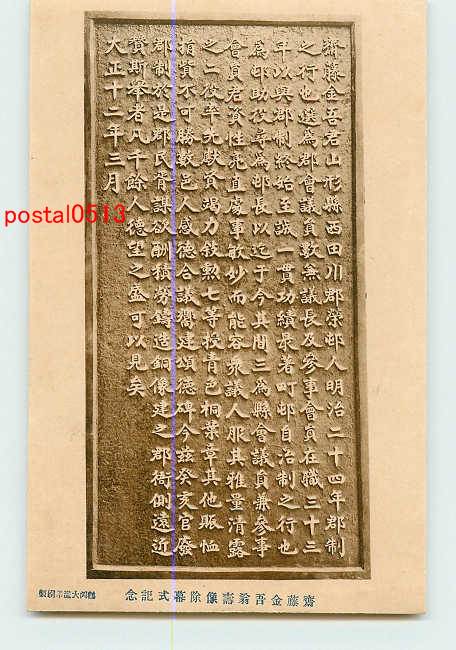 齋藤金吾君山形縣西田川郡榮邨人明治二十四年郡制
之行也選為郡會議員歎無議長及參事會員在職三十三
年以與郡制終始至誠一貫功績最著町邨自治制之行也
為邨助役尋為邨長以迄于今其間三為縣會議員兼參事
會員君資性亮直處事敏妙而能容衆議人服其雅量清露
之一役率先獻資竭力敍勲七等授青色桐葉章其他賑恤
指貲不可勝數邑人感德合議嚮建頌德碑今茲癸亥官廢
郡制於是郡民胥謀欲酬積勞鑄造銅像建之郡衙側遠近
賛斯擧者凡千餘人德望之盛可以見矣
大正十二年三月
齋藤金吾翁壽像除幕式記念
鶴岡大瀧羊樹製
postal0513